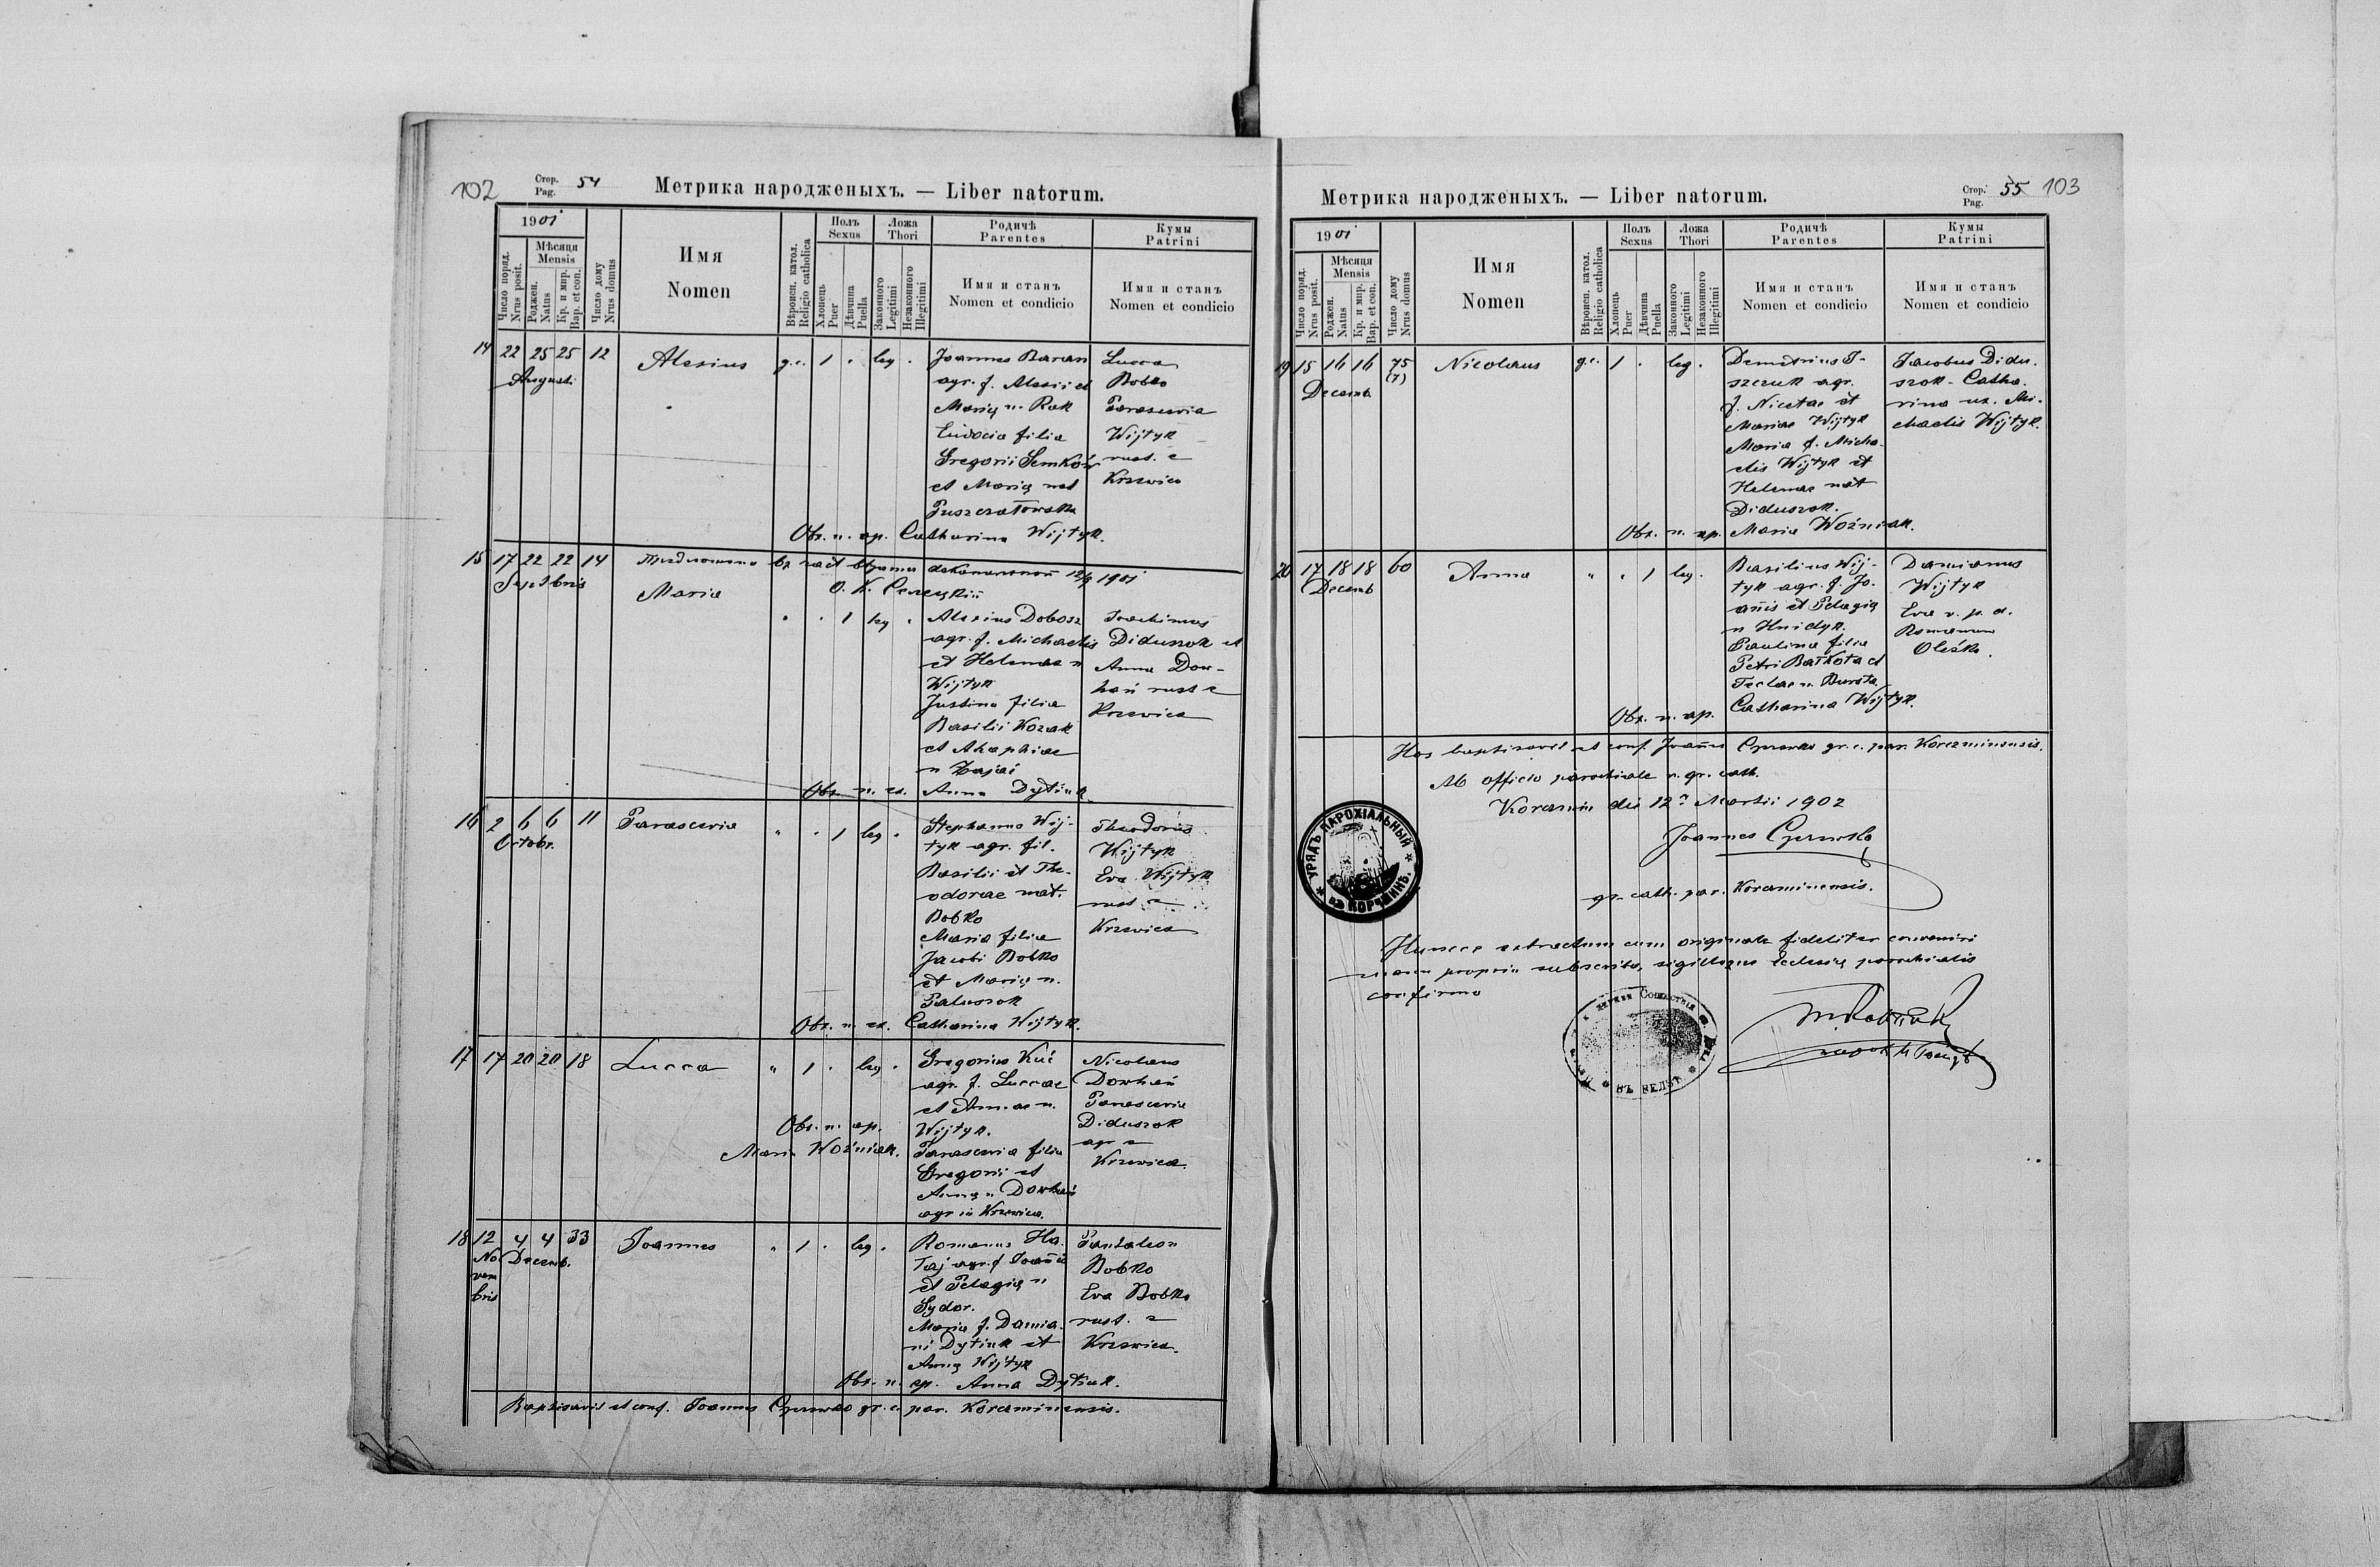 102
Стор.
Pag. 54
Метрика народженыхъ. — Liber natorum.
1901
Число поряд.
Nrus posit.
Мѣсяця
Mensis
Роджен.
Natus
Кр. и мир.
Bap. et con.
Число дому
Nrus domus
Имя
Nomen
Вѣроисп. катол.
Religio catholica
Полъ
Sexus
Хлопець
Puer
Дѣвчина
Puella
Ложа
Thori
Законного
Legitimi
Незаконного
Illegitimi
Родичѣ
Parentes
Имя и станъ
Nomen et condicio
Кумы
Patrini
Имя и станъ
Nomen et condicio
14 22 25 25 12 Alexius g.c. 1 . leg .
Augusti
Joannes Baran
agr. f. Alexii et
Marię n. Rak
Eudocia filia
Gregorii Semków
et Marię nat
Lucca
Bobko
Parascevia
Wijtyk
rust. e
Krzewica
Obs. n. ap. Catharina Wijtyk.
15 17 22 22 14
Septbris
1901
Maria
. . 1 leg .
Alexius Dobosz
agr. f. Michaelis
et Helenae n
Wijtyk
Justina filia
Basilii Kozak
et Ahaphiae
n Zając
Joachimus
Diduszok et
Anna Dow-
hań rust e
Krzewica
Obs. n. ex. Anna Dytiuk
16 2 6 6 11 Parascevia " . 1 leg .
Octobr.
Stephanus Wij-
tyk agr. fil.
Basilii et The-
odorae nat.
Bobko
Maria filia
Jacobi Bobko
et Marię n.
Paluszok
Theodorus
Wijtyk
Eva Wijtyk
rust e
Krzewica
Obs. n. ex. Catharina Wijtyk.
17 17 20 20 18 Lucca " 1 . leg .
Gregorius Kuć
agr. f. Luccae
et Annae n.
Wijtyk.
Parascevia filia
Gregorii et
Annę n Dowhań
agr in Krzewica.
Nicolaus
Dowhań
Parascevia
Diduszok
agr e
Krzewica.
Obs. n. ap.
Maria Woźniak.
18 12 4 4 33 Joannes " 1 . leg .
No Decemb.
vem
bris
Romanus Ha-
łaj agr. f Joańis
et Pelagię n
Sydor.
Maria f. Damia-
ni Dytiuk et
Annę Wijtyk
Pantaleon
Bobko
Eva Bobko
rust. e
Krzewica.
Obs. n. ap. Anna Dytiuk.
Baptisavit et conf. Joannes gr. c. par. Korczminensis.
Метрика народженыхъ. — Liber natorum.
Стор.
Pag. 55 103
1901
Число поряд.
Nrus posit.
Мѣсяця
Mensis
Роджен.
Natus
Кр. и мир.
Bap. et con.
Число дому
Nrus domus
Имя
Nomen
Вѣроисп. катол.
Religio catholica
Полъ
Sexus
Хлопець
Puer
Дѣвчина
Puella
Ложа
Thori
Законного
Legitimi
Незаконного
Illegitimi
Родичѣ
Parentes
Имя и станъ
Nomen et condicio
Кумы
Patrini
Имя и станъ
Nomen et condicio
19 15 16 16 75 Nicolaus g.c. 1 . leg .
(7)
Decemb.
Demetrius I-
szczuk agr.
f. Nicetae et
Mariae Wijtyk
Maria f. Micha-
elis Wijtyk et
Helenae nat
Diduszok.
Jacobus Didu-
szok - Catha-
rina ux. Mi-
chaelis Wijtyk.
Obs. n. ap. Maria Woźniak.
20 17 18 18 60 Anna " . 1 leg .
Decemb
Basilius Wij-
tyk agr. f. Jo-
ańis et Pelagię
n Hnidyk.
Paulina filia
Petri Bałkota et
Teclae n. Bursta
Damianus
Wijtyk
Eva
Romanus
Oleśko.
Obs. n. ap. Catharina Wijtyk.
Hos baptisavit et conf. Joańes gr. c. par. Korczminensis.
Ab officio parochiale r. gr. cath.
Korczmin die 12 Martii 1902
Joannes
gr. cath. par. Korczminensis.
УРЯДЪ ПАРОХІАЛЬНЫЙ
въ КОРЧМИНѢ.
Huncce extractum cum originale fideliter convenire
manu propria subscribo, sigilloque Ecclesię parochialis
confirmo